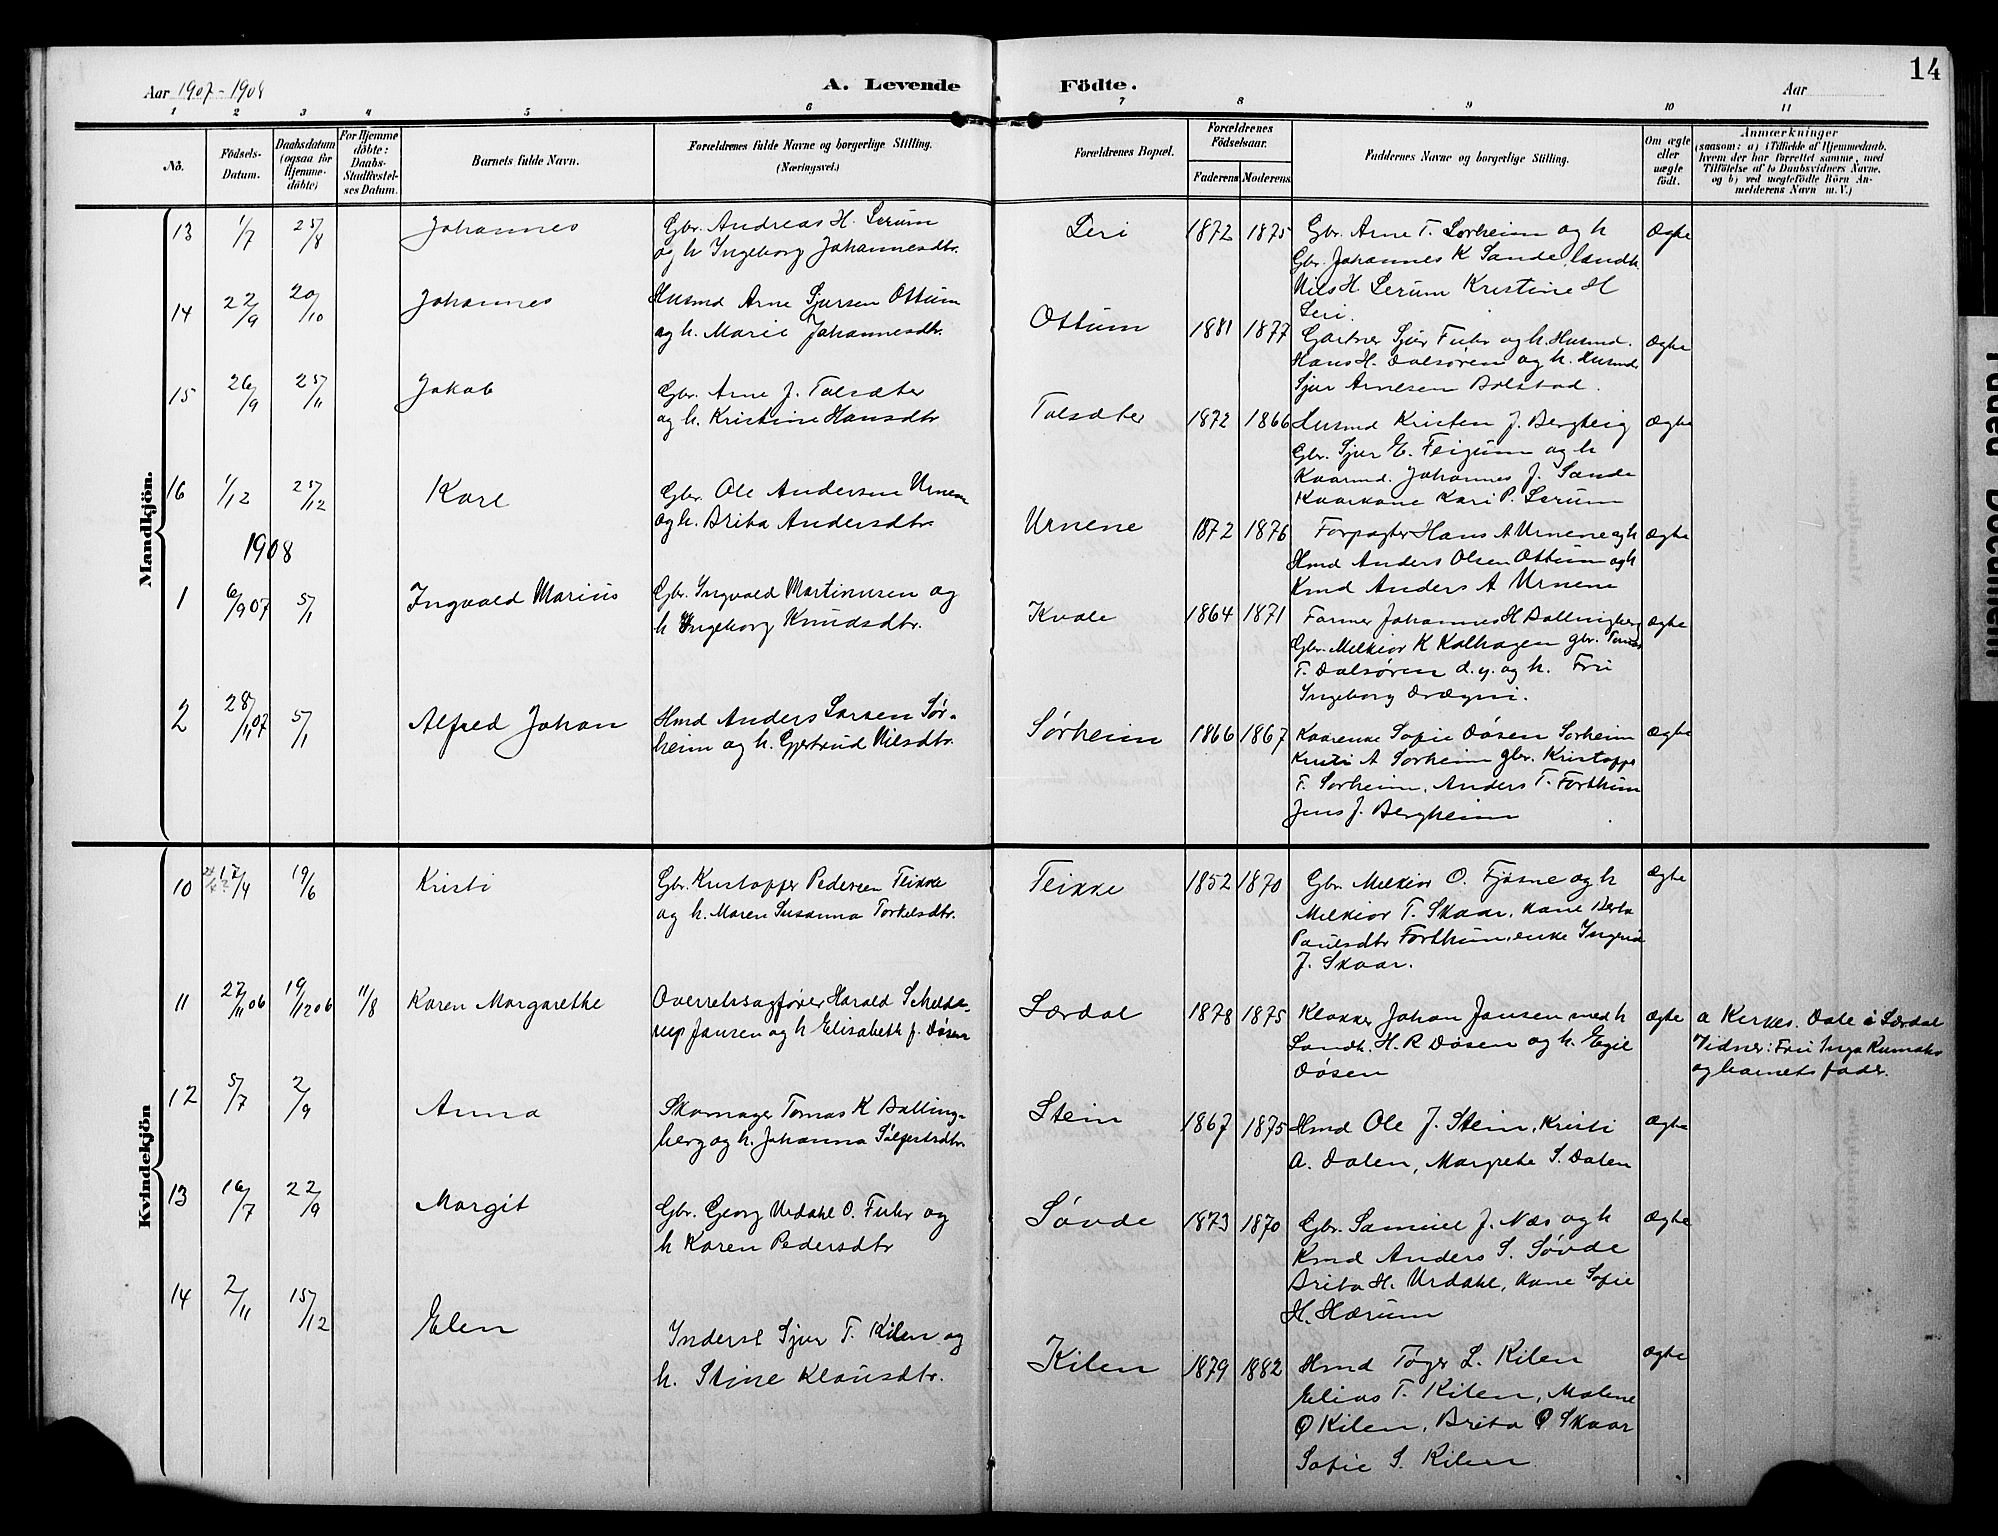 Aar 1907-1908
A. Levende Födte.
Aar
14
1 2 3 4 5 6 7 8 9 10 11
No.
Födsels-
Datum.
Daabsdatum
(ogsaa for
Hjemme-
döbte)
For Hjemme
döbte:
Daabs-
Stadfæstel-
ses Datum.
Barnets fulde Navn.
Forældrenes fulde Navne og borgerlige Stilling.
(Næringsvei.)
Forældrenes Bopæl.
Forældrenes
Födselsaar.
Faderens Moderens
Faddernes Navne og borgerlige Stilling.
Om ægte
eller
uægte
födt.
Anmærkninger
(saasom: a) i Tilfælde af Hjemmedaab,
hvem der har forrettet samme, med
Tilföielse af to Daabsvidners Navne,
og b) ved uægtefödte Börn An-
melderens Navn m. V.)
Mandkjön.
13 1/7 25/8 Johannes
Gbr. Andreas H. Lerum
og h Ingeborg Johannesdtr.
Leri 1872 1875
Gbr. Arne T. Sørheim og h
Gbr. Johannes K Sande, landh.
Nils H Lerum Kristine H
Leri.
Ægte
14 22/9 20/10 Johannes
Husmd Arne Sjursen Ottum
og h. Marie Johannesdtr.
Ottum 1881 1877
Gartner Sjur Fuhr og h. Husmd.
Hans H. Dalsøren og h. Husmd
Sjur Arnesen Bolstad.
Ægte
15 26/9 25/11 Jakob
Gbr. Arne J. Talsæter
og h. Kristine Hansdtr
Talsæter 1872 1866
Husmd Kristen J. Bergheig
Gbr. Sjur E. Feigum og h
Kaarmd. Johannes J. Sande
Kaarkone Kari P. Lerum
Ægte
16 1/12 25/12 Karl
Gbr. Ole Andersen Urnene
og h. Brita Andersdtr.
Urnene 1872 1876
Forpagter Hans A Urnene og h
Hmd Anders Olsen Ottum og h
Kmd Anders A Urnene
Ægte
1908
1 6/9 07 5/1 Ingvald Marius
Gbr. Ingvald Martinusen og
h Ingeborg Knudsdtr.
Kvale 1864 1871
Farmer Johannes H Ballingberg
Gbr. Melkior K Kalhagen gbr. Tomas
T. Dalsøren d.y. og h. Fru
Ingeborg Drægni.
Ægte
2 28/11 07 5/1 Alfred Johan
Hmd Anders Larsen Sør-
heim og h. Gjertrud Nilsdtr.
Sørheim 1866 1867
Kaarenke Sofie Døsen Sørheim
Kristi A Sørheim gbr. Kristoffer
T. Sørheim, Anders T. Forthun
Jens J. Bergheim
Ægte
Kvindekjön
10 17/4 19/6 Kristi
Gbr. Kristoffer Pedersen Teikke
og h. Maren Susanna Torkelsdtr.
Teikke 1852 1870
Gbr. Melkior O. Fjøsne og h
Melkior T. Skaar, Kone Berta
Paulsdtr Forthun, enke Ingrid
J. Skaar.
Ægte
11 27/11 06 19/12 06 11/8 Karen Margarethe
Overretssagfører Harald Schelde-
rup Jansen og h Elisabeth f. Døsen
Lærdal 1878 1875
Klokker Johan Jansen med h
Landh. H. R Døsen og h. Egil
Døsen
Ægte
a Kirkes. Dale i Lærdal
Vidner: Fru Inga
og barnets fader.
12 5/7 2/9 Anna
Skomager Tomas K Balling-
berg og h. Johanna Sølfestsdtr.
Stein 1867 1875
Hmd Ole J. Stein, Kristi
A. Dalen, Margrete S. Dalen
Ægte
13 16/7 22/9 Margit
Gbr. Georg Urdahl O. Fuhr og
h Karen Pedersdtr
Søvde 1873 1870
Gbr. Samuel J. Næs og h
Kmd Anders S. Søvde
Brita H. Urdahl, Kone Sofie
H. Hærum
Ægte
14 2/11 15/12 Elen
Inderst Sjur T. Kilen og
h. Stine Klausdtr.
Kilen 1879 1882
Hmd Tøger L. Kilen
Elias T. Kilen, Malene
O Kilen, Brita O Skaar
Sofie S. Kilen
Ægte